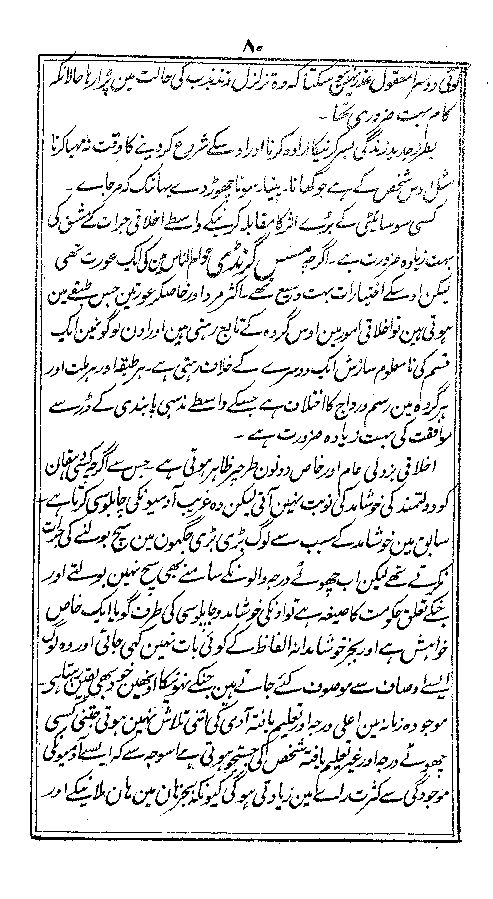 ۸۰
کوئی دوسرا معقول عذر نہیں ہو سکتا کہ وہ تزلزل و تذبذب کی حالت مین پڑا رہا حالانکہ
کام بہت ضروری تھا ۔
بطرز جدید زندگی بسر کرنیکا ارادہ کرنا اور اوسکے شروع کر دینے کا وقت نہ مہیا کرنا
مثل اوس شخص کے ہے جو کھانا ۔ پینا ۔ سونا چھوڑ دے یہانتک کہ مر جاے ۔
کسی سوسائیٹی کے بڑے اثر کا مقابلہ کرنیکے واسطے اخلاقی جرات کے مشق کی
بہت زیادہ ضرورت ہے ۔ اگرچہ مسنس گرنڈی عوام الناس مین کی ایک عورت تھی
لیکن اوسکے اختیارات بہت وسیع تھے ۔ اکثر مرد اور خاصکر عورتین جس طبقے مین
ہوتی ہین تو اخلاقی امور مین اوس گروہ کے تابع رہتی ہین اور اون لوگونمین ایک
قسم کی نامعلوم سازش ایک دوسرے کے خلاف رہتی ہے ۔ ہر طبقہ اور ہر ملت اور
ہر گروہ مین رسم و رواج کا اختلاف ہے جسکے واسطے مذہبی پابندی کے ڈر سے
موافقت کی بہت زیادہ ضرورت ہے ۔
اخلاقی بزدلی عام اور خاص دونون طرحپر ظاہر ہوتی ہے ۔ جس سے اگرچہ کسی
کو دولتمند کی خوشامد کی نوبت نہین آتی لیکن وہ غریب آدمیونکی چاپلوسی کرتا ہے ۔
سابق مین خوشامد کے سبب سے لوگ بڑی بڑی جگہون مین سچ بولنے کی جرات
نکرتے تھے لیکن اب چھوٹے درجہ والونکے سامنے بھی سچ نہین بولتے اور
جنکے تعلق حکومت کا صیغہ ہے تو اونکی خوشامد و چاپلوسی کی طرف گویا ایک خاص
خواہش ہے اور بجز خوشامدانہ الفاظ کے کوئی بات نہین کہی جاتی اور وہ لوگ
ایسے اوصاف سے موصوف کئے جاتے ہین جنکے نہونیکا اونھین خود بھی یقین ہوتا ہے ۔
موجودہ زمانہ مین اعلی درجہ اور تعلیم یافتہ آدمی کی اتنی تلاش نہین ہوتی جتنی کسی
چھوٹے درجہ اور غیر تعلیم یافتہ شخص کی جستجو ہوتی ہے اسوجہ سے کہ ایسے آدمیونکی
موجودگی سے کثرت راے مین زیادتی ہوگی کیونکہ بجز ہان مین ہان ملانیکے اور